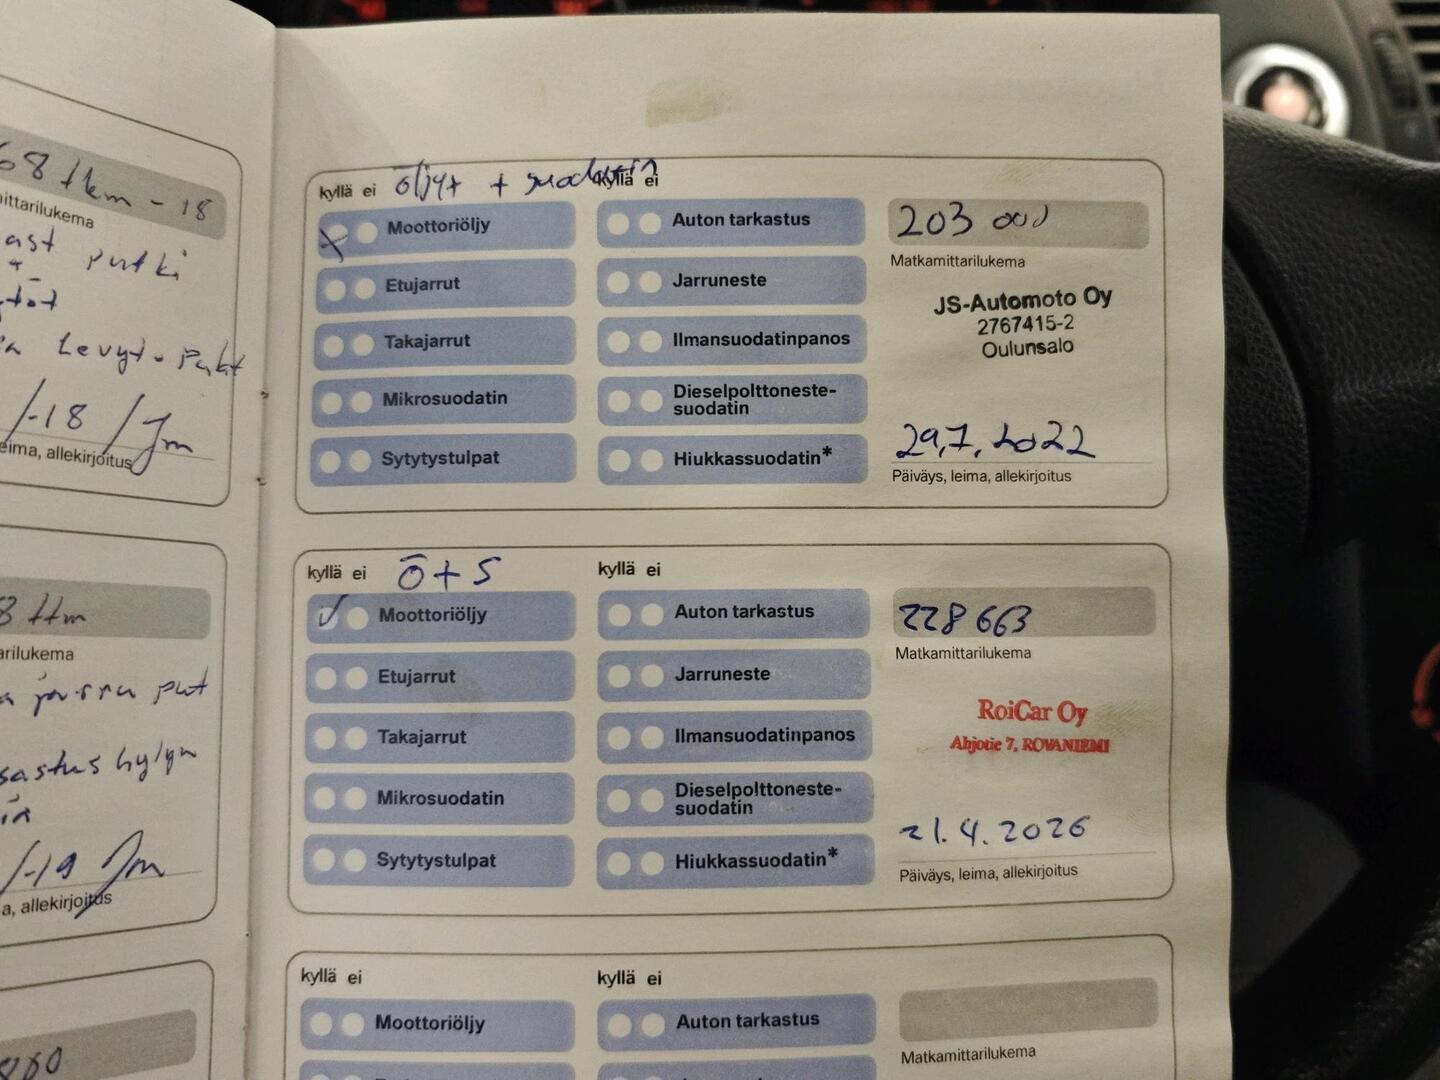 68 tkm - 18
mittarilukema
ast putki
Levyt - Palat
/-18 / Jm
eima, allekirjoitus
8 tkm
arilukema
a jarru put
sastus hylyn
/-19 Jm
a, allekirjoitus
860
kyllä ei öljyt + suodatin kyllä ei
Moottoriöljy Auton tarkastus 203 000
Etujarrut Jarruneste Matkamittarilukema
Takajarrut Ilmansuodatinpanos JS-Automoto Oy
2767415-2
Oulunsalo
Mikrosuodatin Dieselpolttoneste-
suodatin
Sytytystulpat Hiukkassuodatin* 29.7.2022
Päiväys, leima, allekirjoitus
kyllä ei ö+s kyllä ei
Moottoriöljy Auton tarkastus 228 663
Etujarrut Jarruneste Matkamittarilukema
Takajarrut Ilmansuodatinpanos RoiCar Oy
Ahjotie 7, ROVANIEMI
Mikrosuodatin Dieselpolttoneste-
suodatin
Sytytystulpat Hiukkassuodatin* 21.4.2026
Päiväys, leima, allekirjoitus
kyllä ei kyllä ei
Moottoriöljy Auton tarkastus
Matkamittarilukema